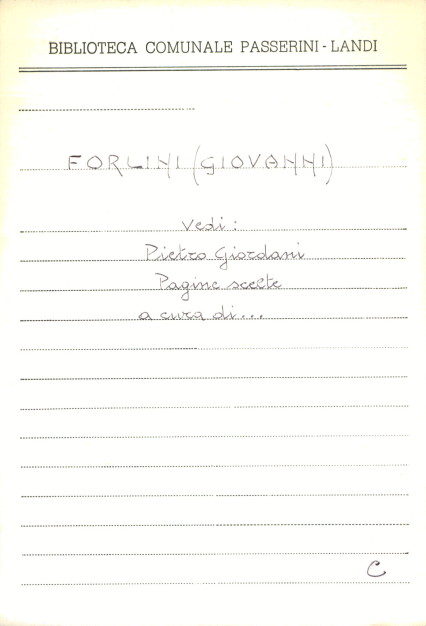 BIBLIOTECA COMUNALE PASSERINI - LANDI
FORLINI (GIOVANNI)
Vedi:
Pietro Giordani
Pagine scelte
a cura di...
C